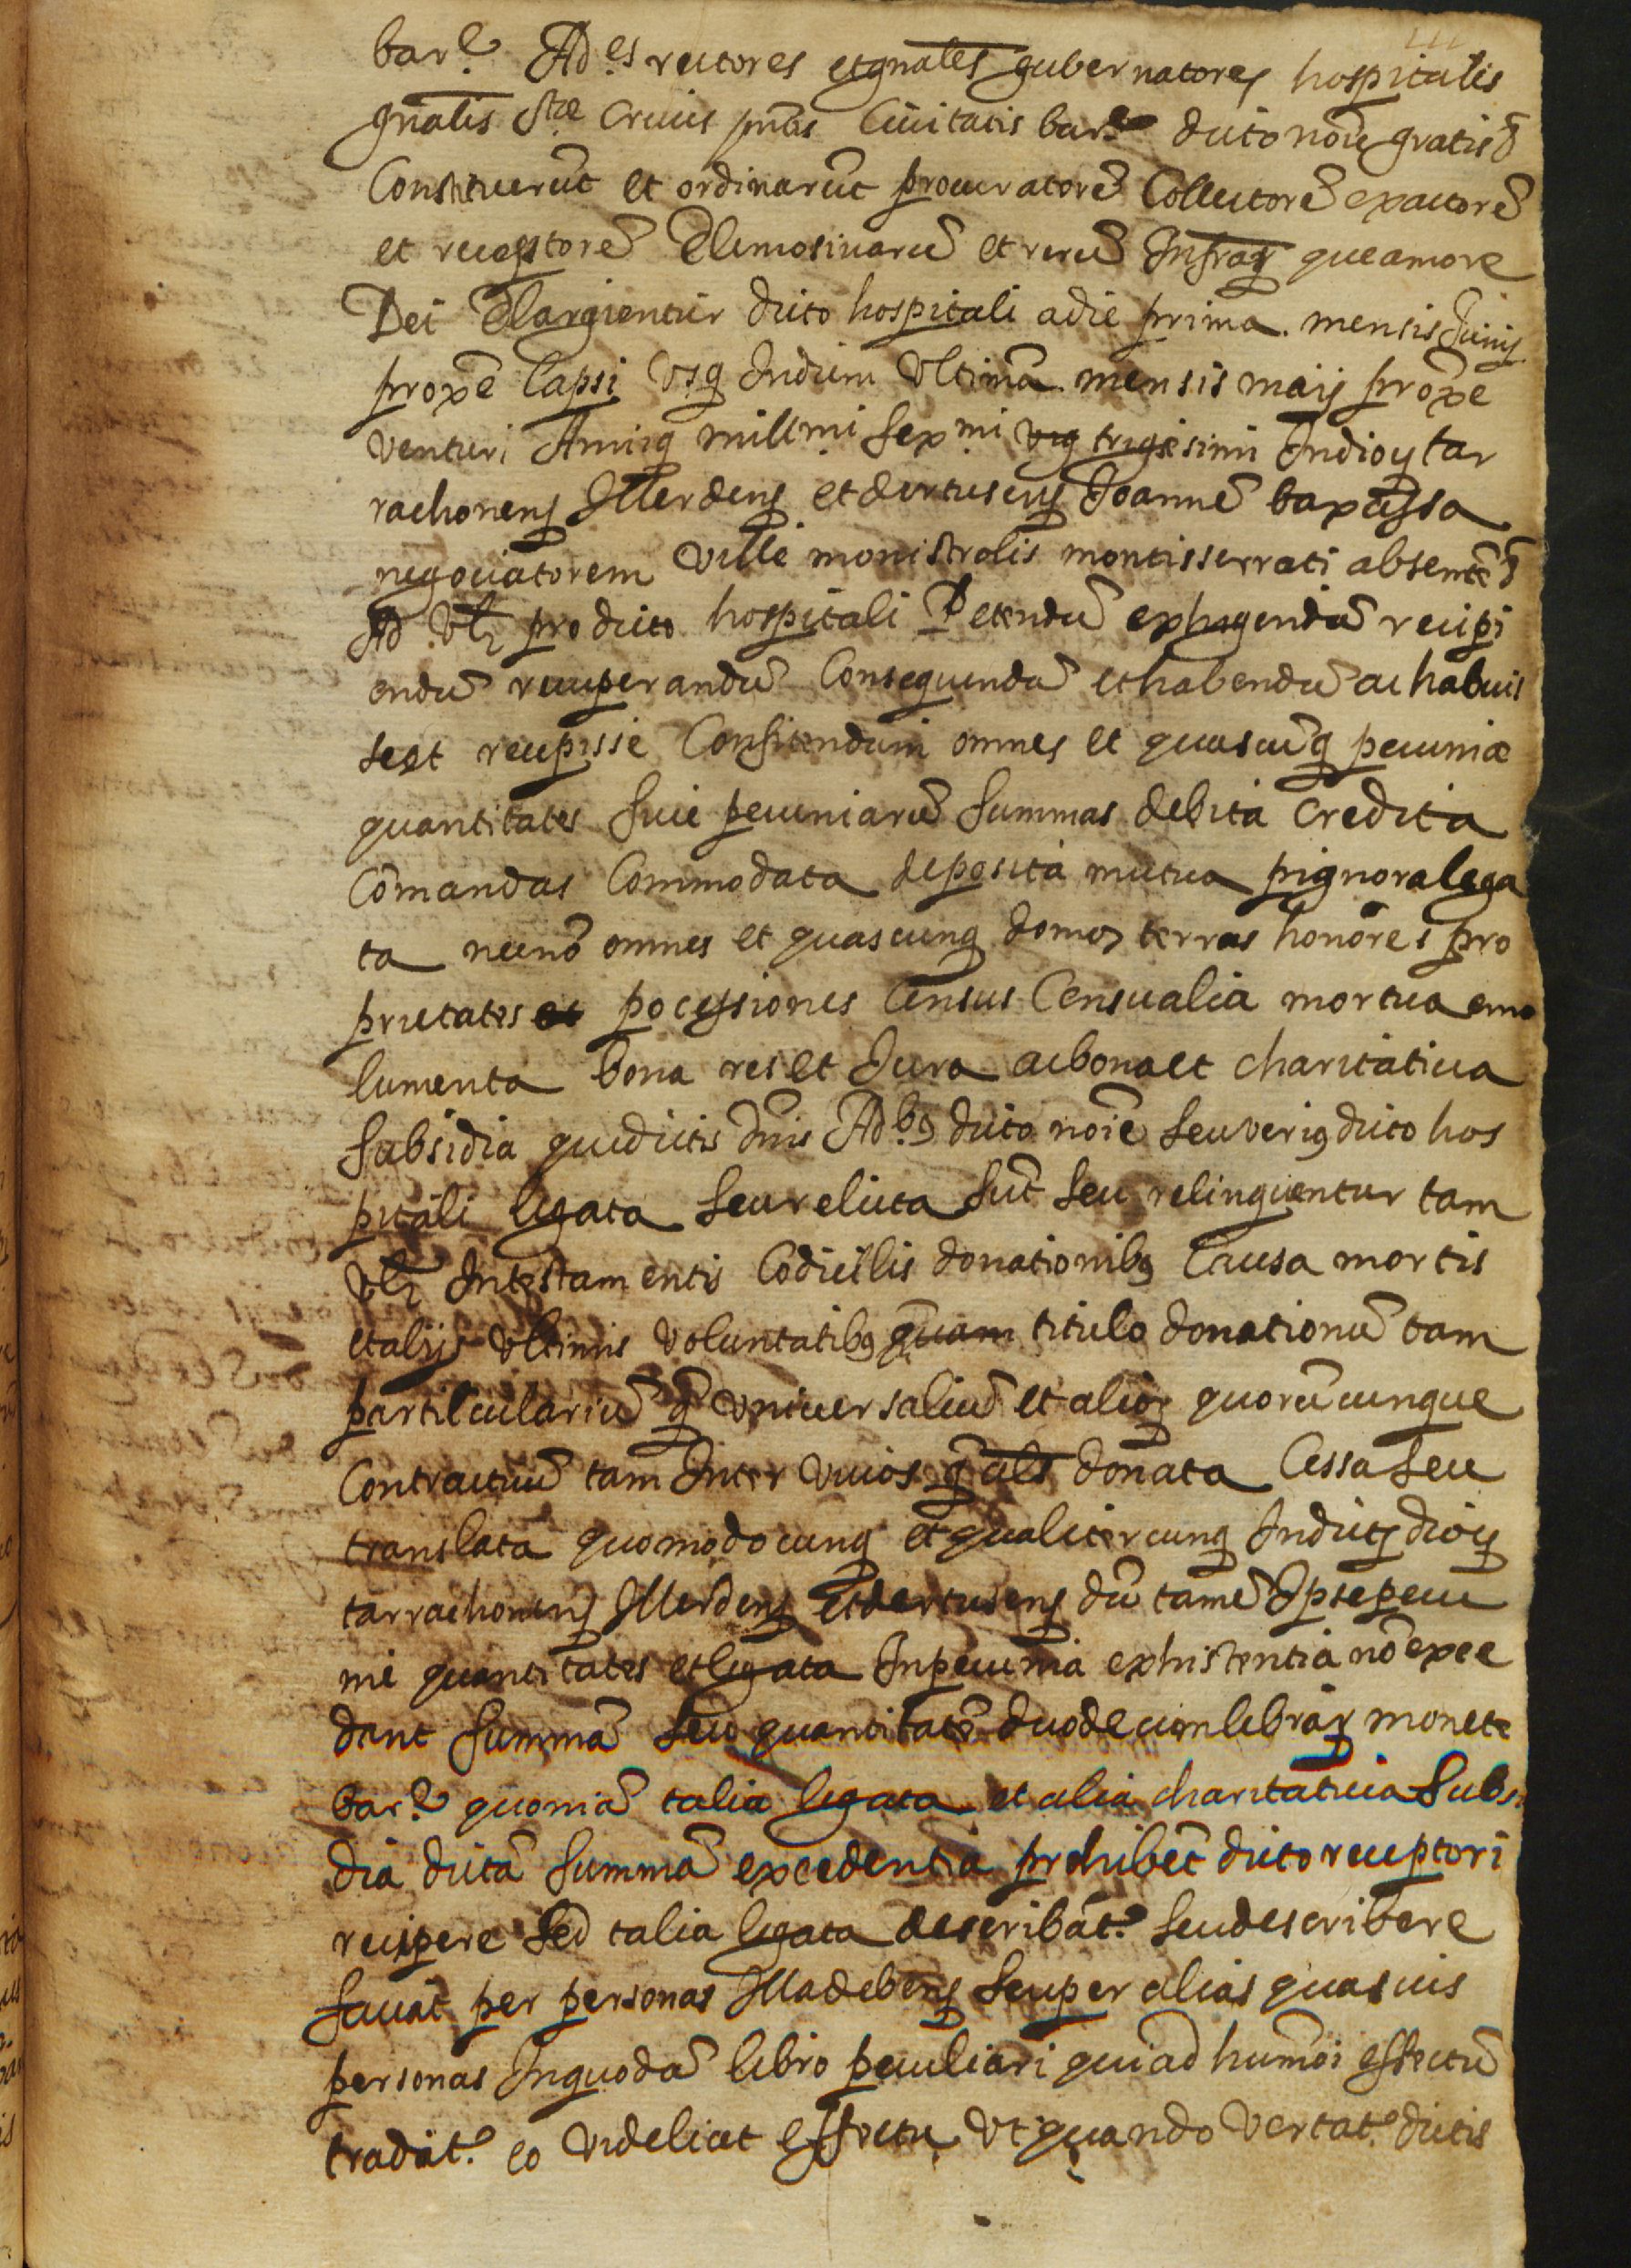 bar.e Ad.es rectores et gnales gubernatores hospitalis
gnalis Ste Crucis pntis Ciuitatis bar.e dicto noie gratis &
Constituerut et ordinarut procuratore Collectore exactore
et receptore Elemosinaru et reru Infrar que amore
Dei Elargientur dicto hospitali a die prima mensis Junij
proxe lapsi Vsq Indiem Vltima mensis maij proxe
venturi Anniq millmi sexmi vig trigesimi In dioy tar
rachonens Illerdens et dertusens Joanne baxassa
negociatorem Ville monistrolis montisserrati absente &
Ad Vlr pro dicto hospitali Petendu exhigendu recipi
endu recuperandu Consequendu et habendu ac habuis
se et recepisse Confitendum omnes et quascuq pecuniæ
quantitates siue pecuniaru summas debita credita
Comandas Commodata deposita mutua pignora lega
ta necno omnes et quascunq domos terras honores pro
prietates et pocessiones Census Censualia mortua emo
lumenta bona res et Jura ac bona et charitatiua
subsidia que dictis dnis Ad.bs dicto noie seu verius dicto hos
pitali legata seu relicta sut seu relinquentur tam
Vlr In testamentis Codicillis donationibs Causa mortis
et alijs Vltimis Voluntatibs quam titulo donationu tam
particulariu q vniuersaliu et alior quorucunque
Contractuu tam Inter viuos q als donata Cessa seu
translata quomodocunq et qualitercunq In dicts dioy
tarrachonens Illerdens et dertusens du tame Ipse pecu
nie quantitates et legata In pecunia exhistentia no exce
dant summa seu quantitate duodecim librar monete
bar.e quonia talia legata et alia charitatiua subsi
dia dicta summa excedentia prohibet dicto receptori
recipere sed talia legata describat.r seu describere
faciat per personas Illa debens seu per alias quasuis
personas In quoda libro peculiari qui ad humoi effectu
tradit.r eo videlicet effectu Vt quando vertat.r dictis